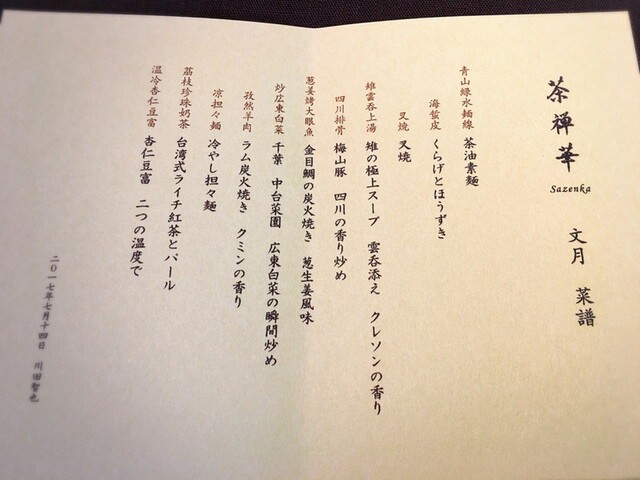 茶禅華
Sazenka
文月　菜譜
青山緑水麺線　茶油素麺
海蜇皮　くらげとほうずき
叉焼　叉焼
雉雲呑上湯　雉の極上スープ　雲呑添え　クレソンの香り
四川排骨　梅山豚　四川の香り炒め
葱姜烤大眼魚　金目鯛の炭火焼き　葱生姜風味
炒広東白菜　千葉　中台菜園　広東白菜の瞬間炒め
孜然羊肉　ラム炭火焼き　クミンの香り
凉担々麺　冷やし担々麺
荔枝珍珠奶茶　台湾式ライチ紅茶とパール
温冷杏仁豆富　杏仁豆富　二つの温度で
二〇一七年七月十四日　川田智也